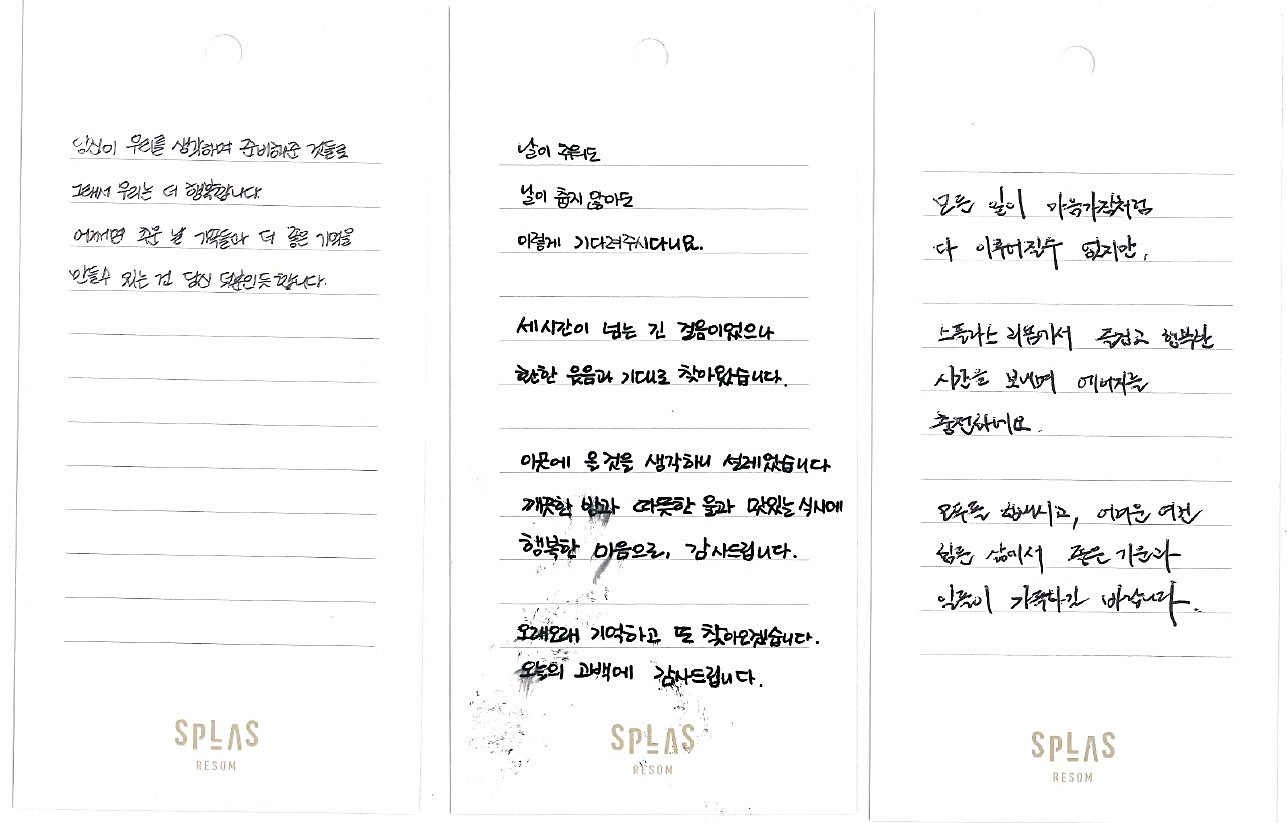 당신이 우리를 생각하며 준비해준 것들로
그래서 우리는 더 행복합니다.
어쩌면 추운 날 가족들과 더 좋은 기억을
만들수 있는 건 당신 덕분인듯 합니다.
SPLAS
RESOM
날이 추워도
날이 춥지 않아도
이렇게 기다려주시다니요.
세시간이 넘는 긴 걸음이었으나
환한 웃음과 기대로 찾아왔습니다.
이곳에 올것을 생각하니 설레었습니다
깨끗한 방과 따뜻한 물과 맛있는 식사에
행복한 마음으로, 감사드립니다.
오래오래 기억하고 또 찾아오겠습니다.
오늘의 고백에 감사드립니다.
SPLAS
RESOM
모든 일이 마음가짐처럼
다 이루어질수 없지만,
스플라스 리솜에서 즐겁고 행복한
시간을 보내며 에너지를
충전하네요.
모두들 힘내시고, 어려운 여건
힘든 삶에서 좋은 기운과
일들이 가득하길 바랍니다.
SPLAS
RESOM